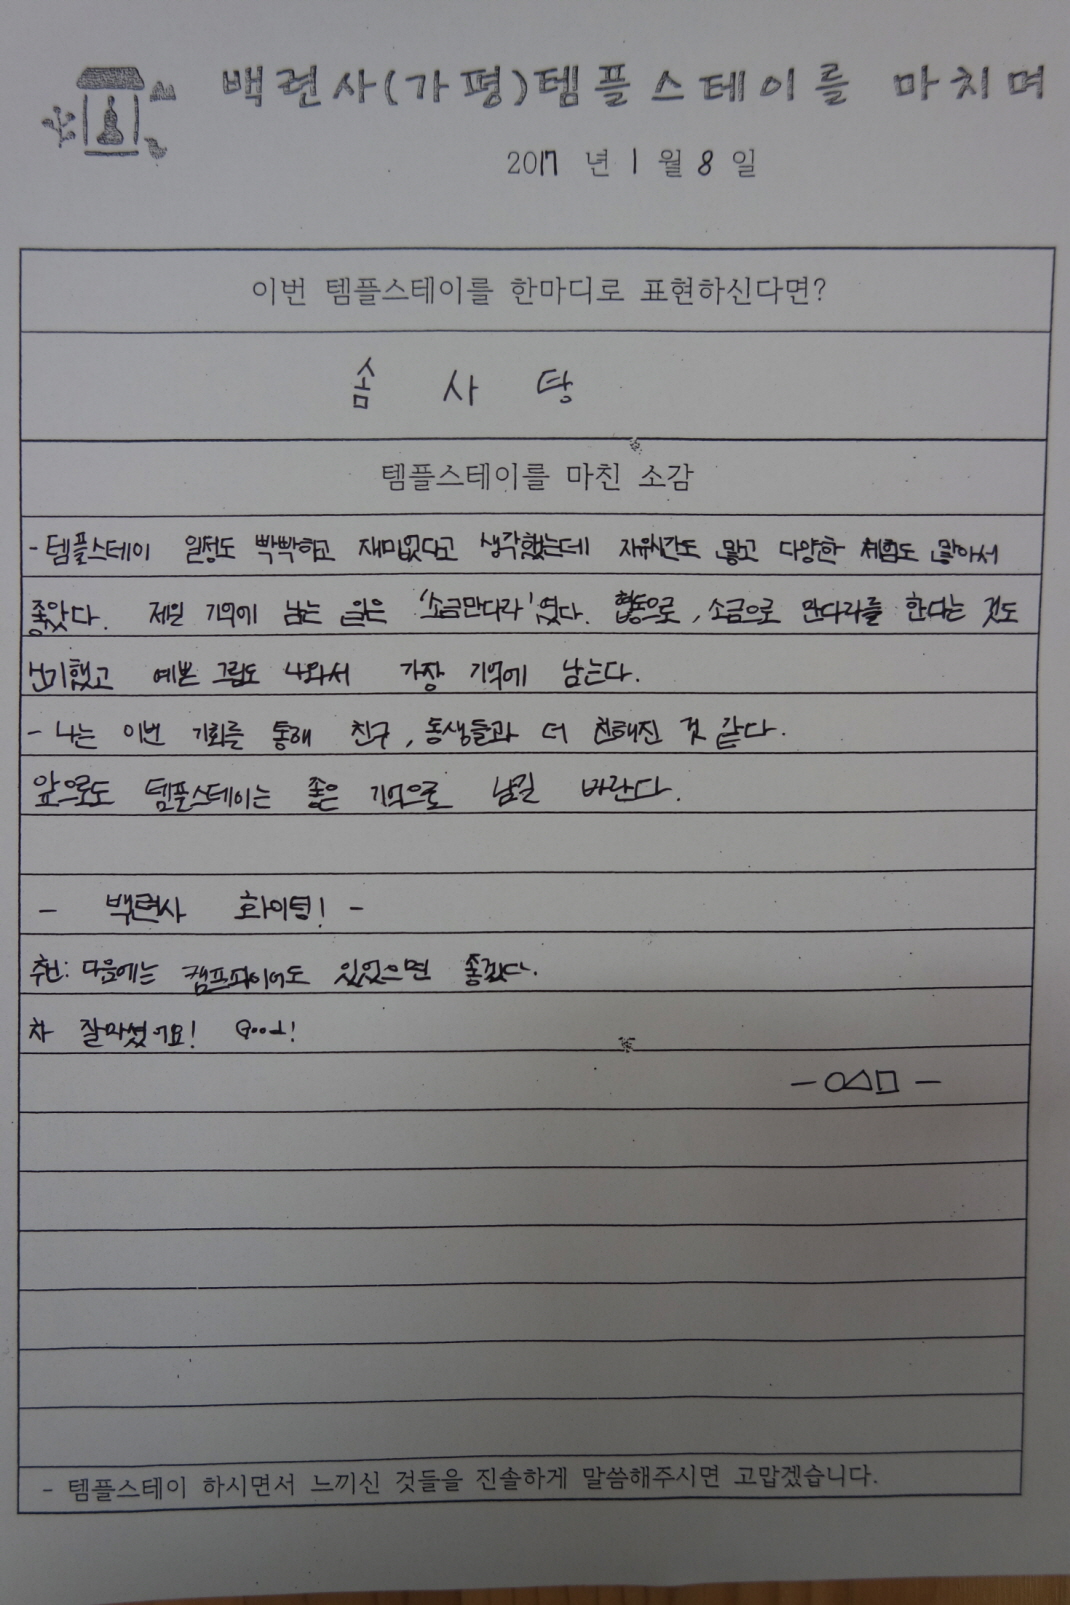 백련사(가평)템플스테이를 마치며
2017 년 1 월 8 일
이번 템플스테이를 한마디로 표현하신다면?
솜 사 탕
템플스테이를 마친 소감
- 템플스테이 일정도 빡빡하고 재미없다고 생각했는데 자유시간도 많고 다양한 체험도 많아서
좋았다. 제일 기억에 남는 일은 '소금만다라'였다. 협동으로, 소금으로 만다라를 한다는 것도
신기했고 예쁜 그림도 나와서 가장 기억에 남는다.
- 나는 이번 기회를 통해 친구, 동생들과 더 친해진 것 같다.
앞으로도 템플스테이는 좋은 기억으로 남길 바란다.
- 백련사 화이팅! -
추신: 다음에는 캠프파이어도 있었으면 좋겠다.
차 잘마셨어요! Good!
- ○△□ -
- 템플스테이 하시면서 느끼신 것들을 진솔하게 말씀해주시면 고맙겠습니다.